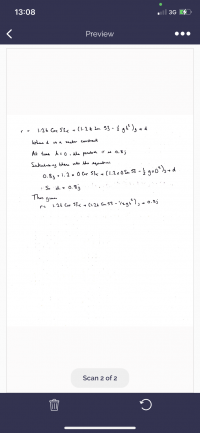 13:08
3G
Preview
r = 1.2t Cos 53i + (1.2t Sin 53 - ½gt²)j + d
Where d is a vector constant
At time t=0, the position is 0.8j
Substituting these into the equation
0.8j = 1.2 × 0 Cos 53i + (1.2×0 Sin 53 - ½g×0²)j + d
So d = 0.8j
This gives
r = 1.2t Cos 53i + (1.2t Sin 53 - ½gt²)j + 0.8j
Scan 2 of 2